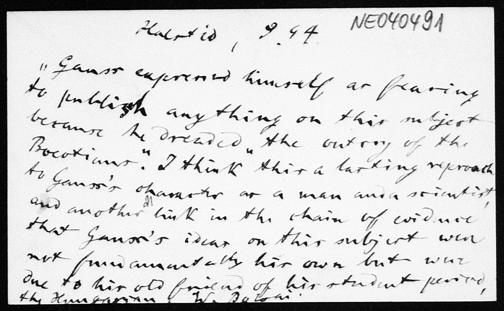 Halsted, 9.44. NE040491
"Gauss expressed himself as fearing
to publish anything on this subject
because he dreaded "the outcry of the
Boeotians". I think this a lasting reproach
to Gauss's character as a man and a scientist,
and another link in the chain of evidence
that Gauss's ideas on this subject were
not fundamentally his own but were
due to his old friend of his student period,
the Hungarian, W. Bolyai.